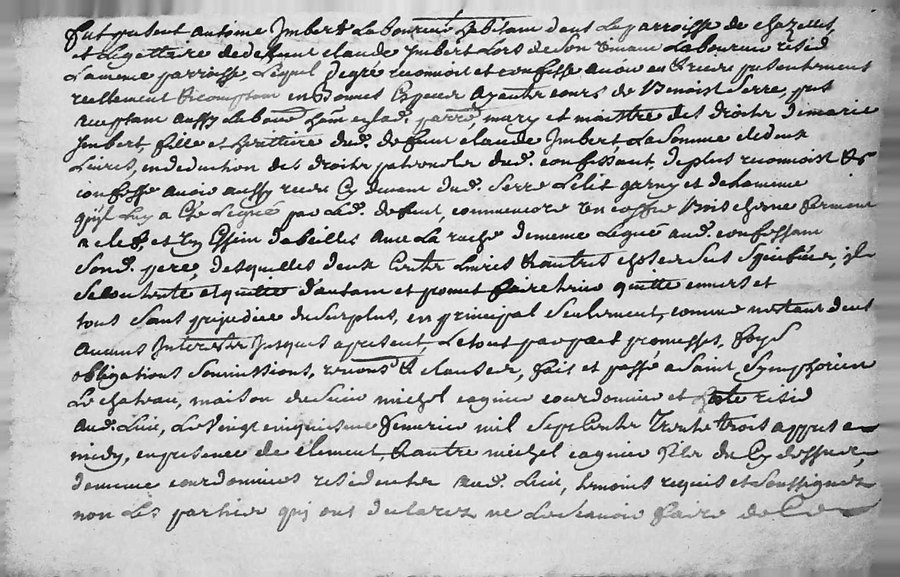 fut present antoine Imbert Laboureur habitant dens La parroisse de chazelles
et Legattaire dedeffunt claude Imbert Lors de son vivant Laboureur resid
Lameme parroisse, Lequel degré reconnoit et confesse avoir eu & receu presentement
reellement & comptant en Bonnes Especes ayant cours de Benoist Serre, pnt
acceptant aussy Laboureur parre, mary et maittre des droits de marie
Imbert, fille et heritiere dud. deffunt claude Imbert La Somme de deux
Livres, en deduction des droits paternels dud. confessant, de plus reconnoit &
confesse avoir aussy receu Cy devant dud. Serre Le Lit garny et de homme
quil Luy a Eté Legué par Led. deffunt, comme encore un coffre Bois chesne fermant
a clef et un Essim d'abeilles avec La ruche de meme Legué aud. confessant
Sond. pere, desquelles deux Cents Livres & autres choses sus Speciffiées, il
Se contente et quitte d'autant et promet faire tenir quitte envers et
tous Sans prejudice du Surplus, en principal Seulement, comme nestant deus
Aucuns Interests Jusques apresent, Le tout par pact promesses, foys
obligations Soumissions, renons & clauses, fait et passé a Saint Symphorien
Le chateau, maison de Sieur michel cagnier courdonnier et hote resid
Aud. Lieu, Le vingt cinquieme fevrier mil Sept Cents Trente trois appres
midy, en presence de clement, & autre michel cagnier fils du Cy dessus,
de meme courdonniers residents Aud. Lieu, temoins requis et Soussignez
non Les parties qui ont declarez ne Le Scavoir faire de Ce